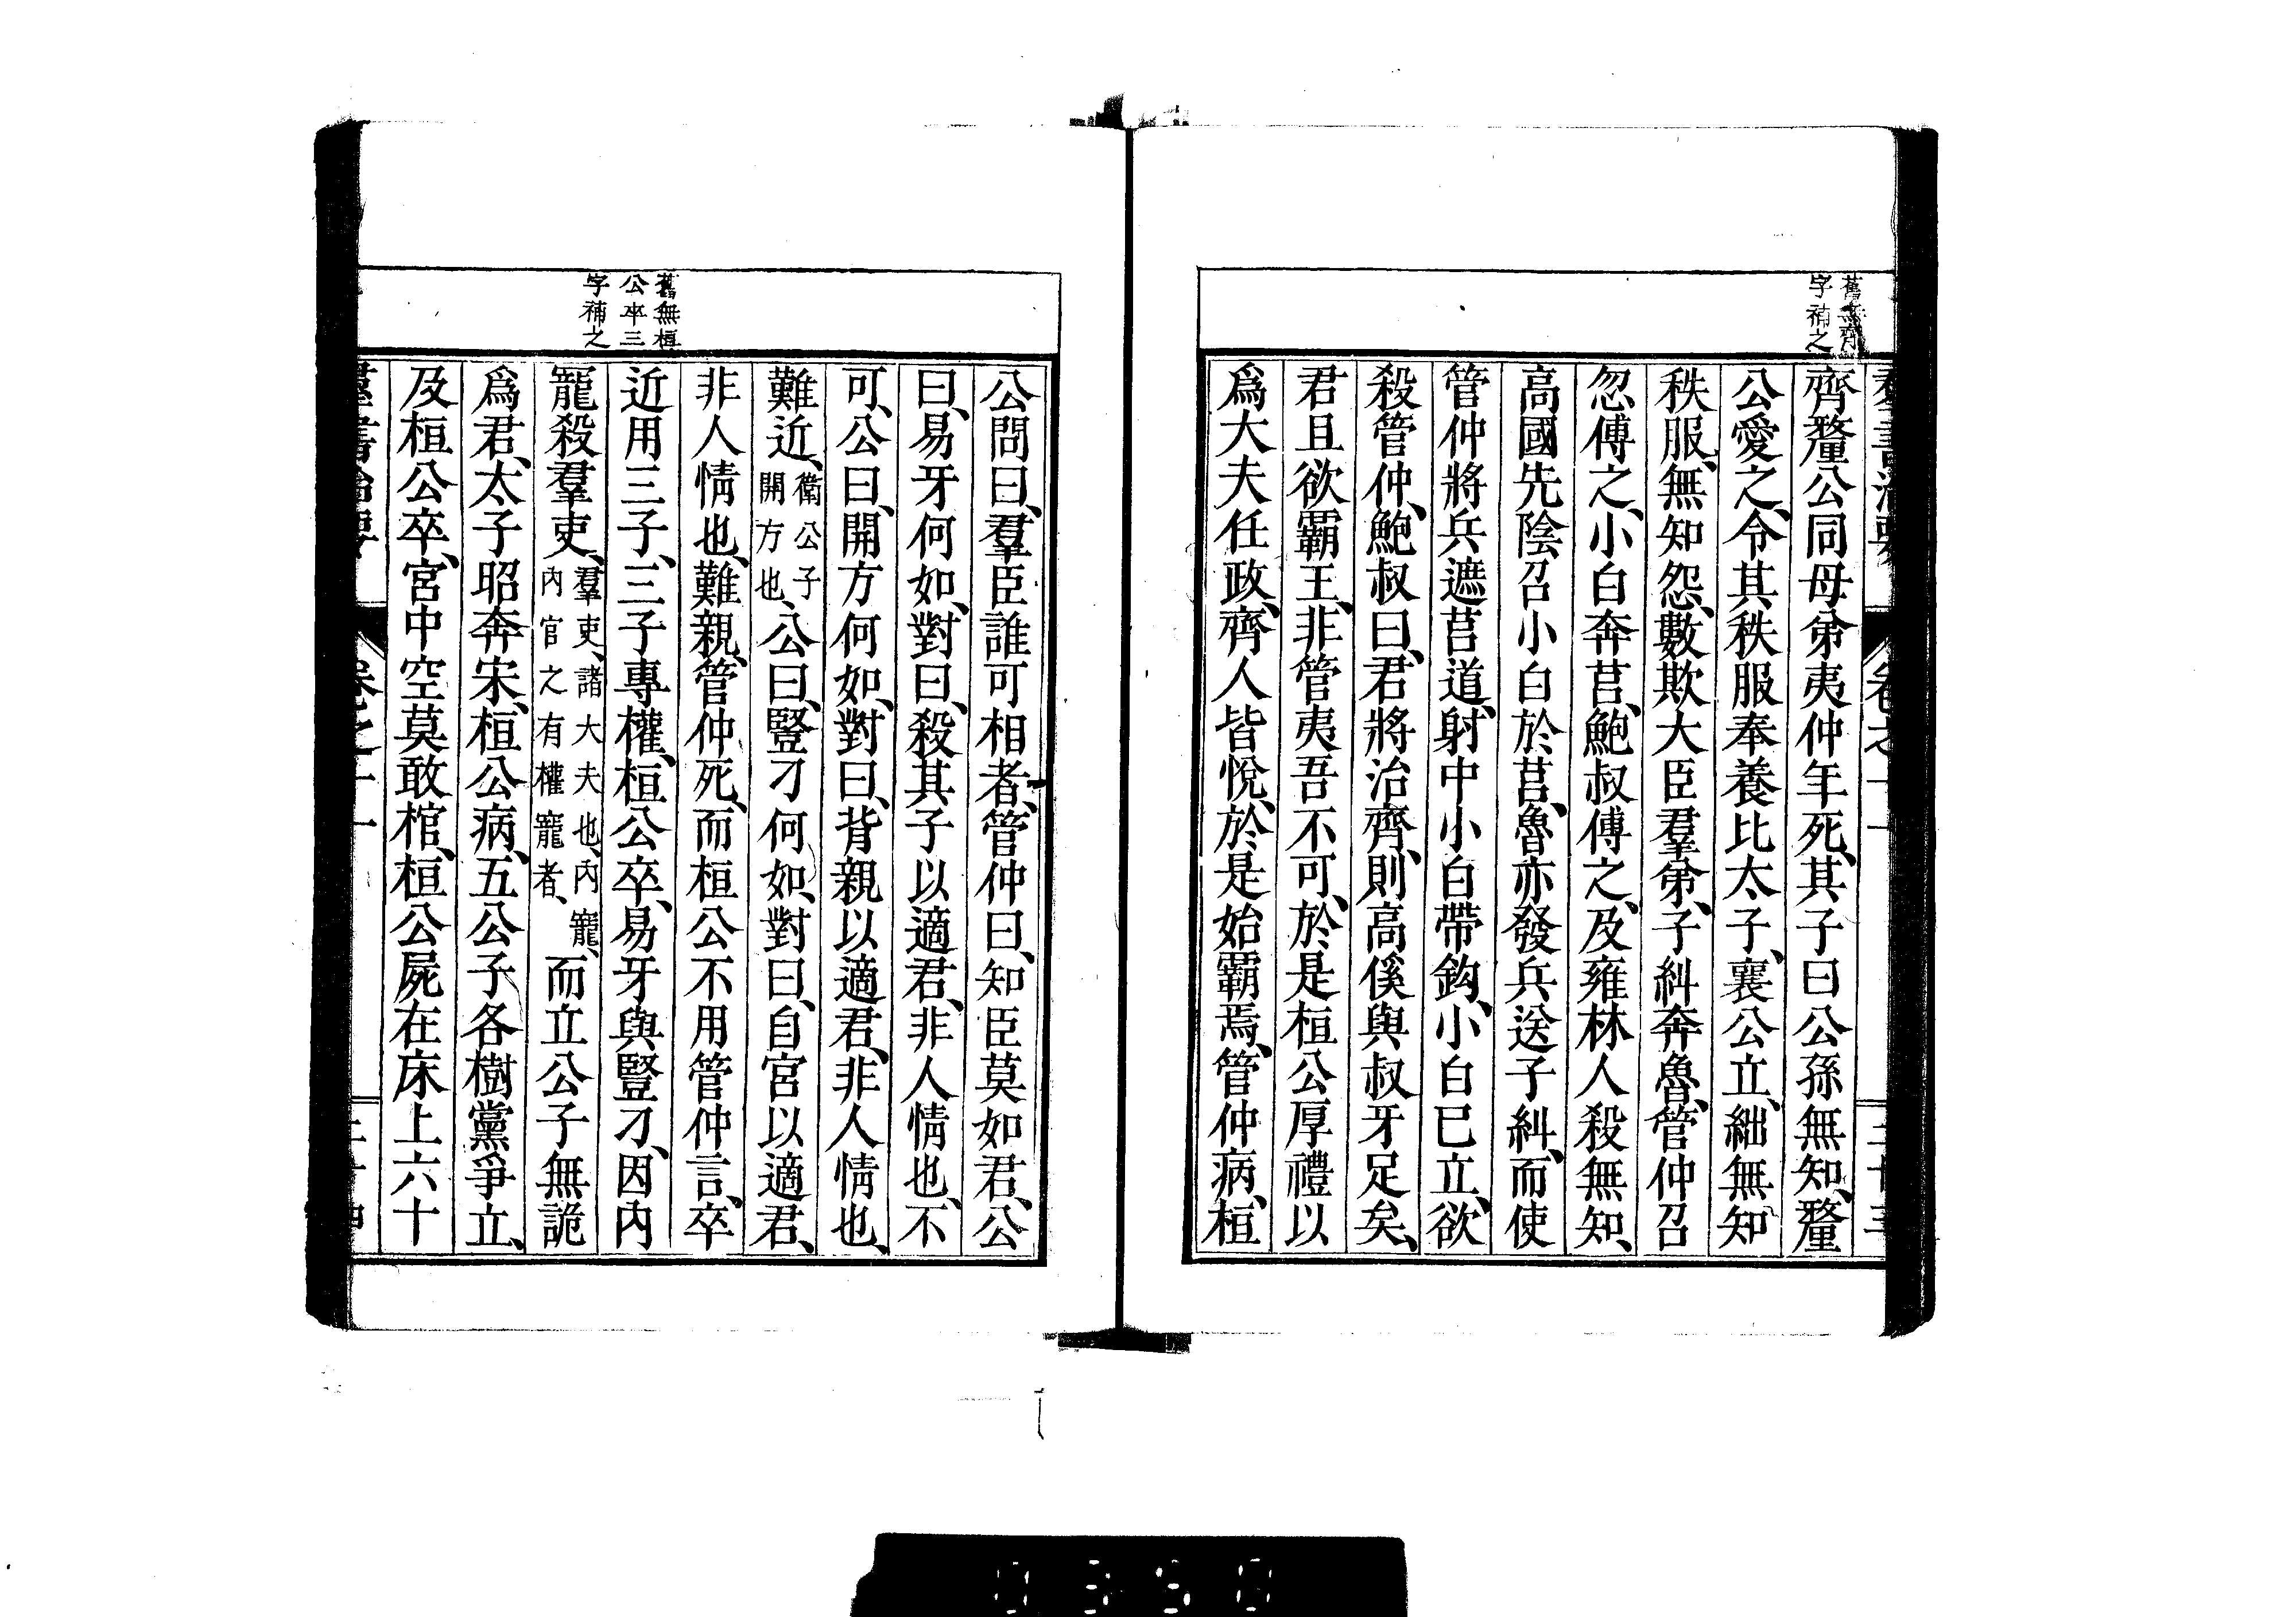 舊無齊
字補之
齊釐公同母弟夷仲年死、其子曰公孫無知、釐
公愛之、令其秩服奉養比太子、襄公立、絀無知
秩服、無知怨、數欺大臣羣弟、子糾奔魯、管仲召
忽傅之、小白奔莒、鮑叔傅之、及雍林人殺無知、
高國先陰召小白於莒、魯亦發兵送子糾、而使
管仲將兵遮莒道、射中小白帶鈎、小白已立、欲
殺管仲、鮑叔曰、君將治齊、則高傒與叔牙足矣、
君且欲霸王、非管夷吾不可、於是桓公厚禮以
爲大夫任政、齊人皆悅、於是始霸焉、管仲病、桓
公問曰、羣臣誰可相者、管仲曰、知臣莫如君、公
曰、易牙何如、對曰、殺其子以適君、非人情也、不
可、公曰、開方何如、對曰、背親以適君、非人情也、
難近、衞公子開方也、公曰、豎刁何如、對曰、自宮以適君、
非人情也、難親、管仲死、而桓公不用管仲言、卒
舊無桓
公卒三
字補之
近用三子、三子專權、桓公卒、易牙與豎刁、因內
寵殺羣吏、羣吏、諸大夫也、內寵、內官之有權寵者、而立公子無詭
爲君、太子昭奔宋、桓公病、五公子各樹黨爭立、
及桓公卒、宮中空莫敢棺、桓公屍在床上六十
0350